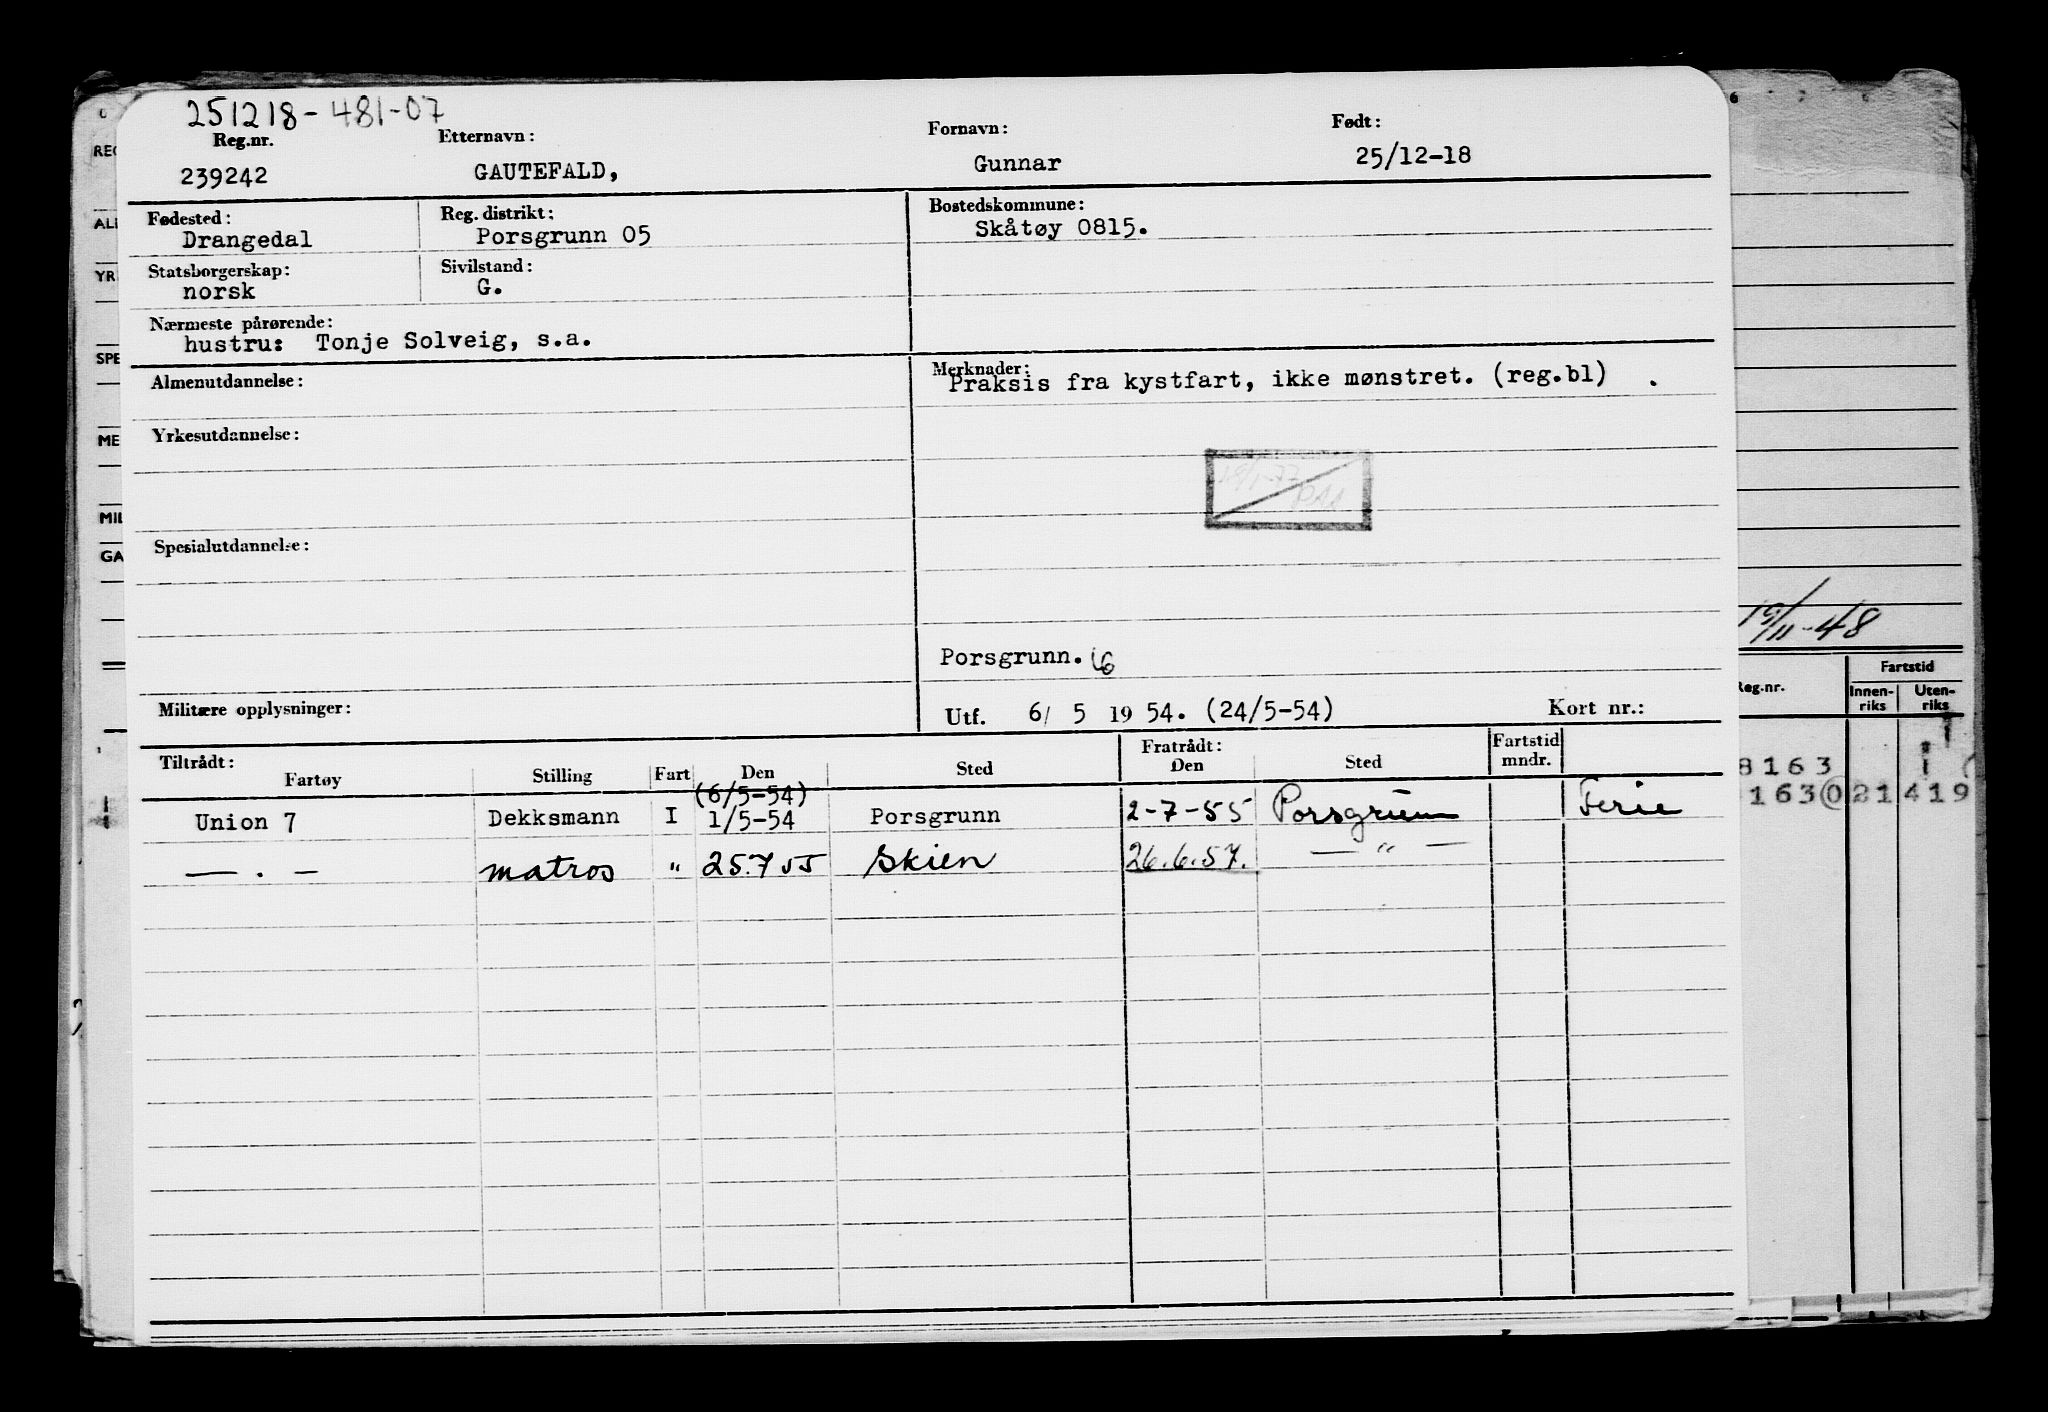 251218-481-07
Reg.nr. Etternavn: Fornavn: Født:
239242 GAUTEFALD, Gunnar 25/12-18
Fødested: Reg. distrikt: Bostedskommune:
Drangedal Porsgrunn 05 Skåtøy 0815.
Statsborgerskap: Sivilstand:
norsk G.
Nærmeste pårørende:
hustru: Tonje Solveig, s.a.
Almenutdannelse: Merknader:
Praksis fra kystfart, ikke mønstret. (reg.bl) .
Yrkesutdannelse:
Spesialutdannelse:
Porsgrunn.
Militære opplysninger: Utf. 6/ 5 19 54. (24/5-54) Kort nr.:
Tiltrådt: Fratrådt: Fartstid
Fartøy Stilling Fart Den Sted Den Sted mndr.
(6/5-54)
Union 7 Dekksmann I 1/5-54 Porsgrunn 2-7-55 Porsgrunn Ferie
— . — matros " 25.7 55 Skien 26.6.57. — " —
REG
ALM
YR
SPE
ME
MIL
GA
6
19/11-48
Reg.nr. Fartstid
Innen-riks Uten-riks
8163
1630 21 419